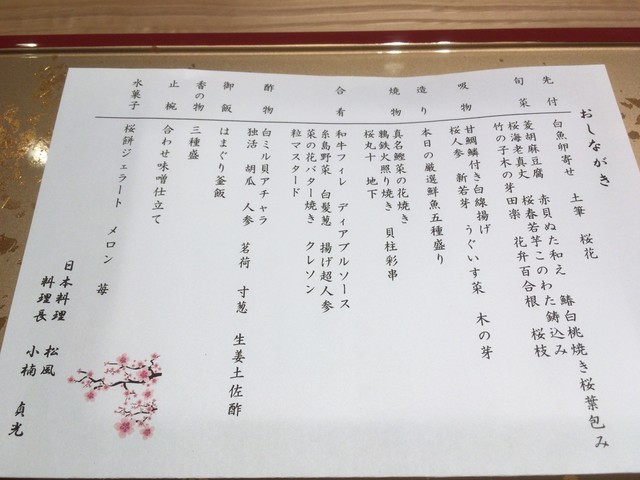 おしながき
先付 白魚卵寄せ 土筆 桜花
旬菜 菱胡麻豆腐 赤貝ぬた和え 鰆白桃焼き桜葉包み
桜海老真丈 桜春若芋このわた鋳込み
竹の子木の芽田楽 花弁百合根 桜枝
吸物 甘鯛鱗付き白線揚げ うぐいす菜 木の芽
桜人参 新若芽
造り 本日の厳選鮮魚五種盛り
焼物 真名鰹菜の花焼き
鶉鉄火照り焼き 貝柱彩串
桜丸十 地下
合肴 和牛フィレ ディアブルソース
糸島野菜 白髪葱 揚げ超人参
菜の花バター焼き クレソン
粒マスタード
酢物 白ミル貝アチャラ
独活 胡瓜 人参 茗荷 寸葱 生姜土佐酢
御飯 はまぐり釜飯
香の物 三種盛
止椀 合わせ味噌仕立て
水菓子 桜餅ジェラート メロン 苺
日本料理 松風
料理長 小楠 貞光